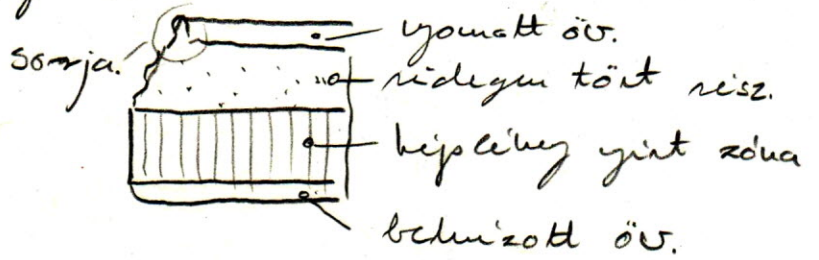 sorja.
nyomott öv.
ridegen tört rész.
képlékeny nyírt zóna
behúzott öv.